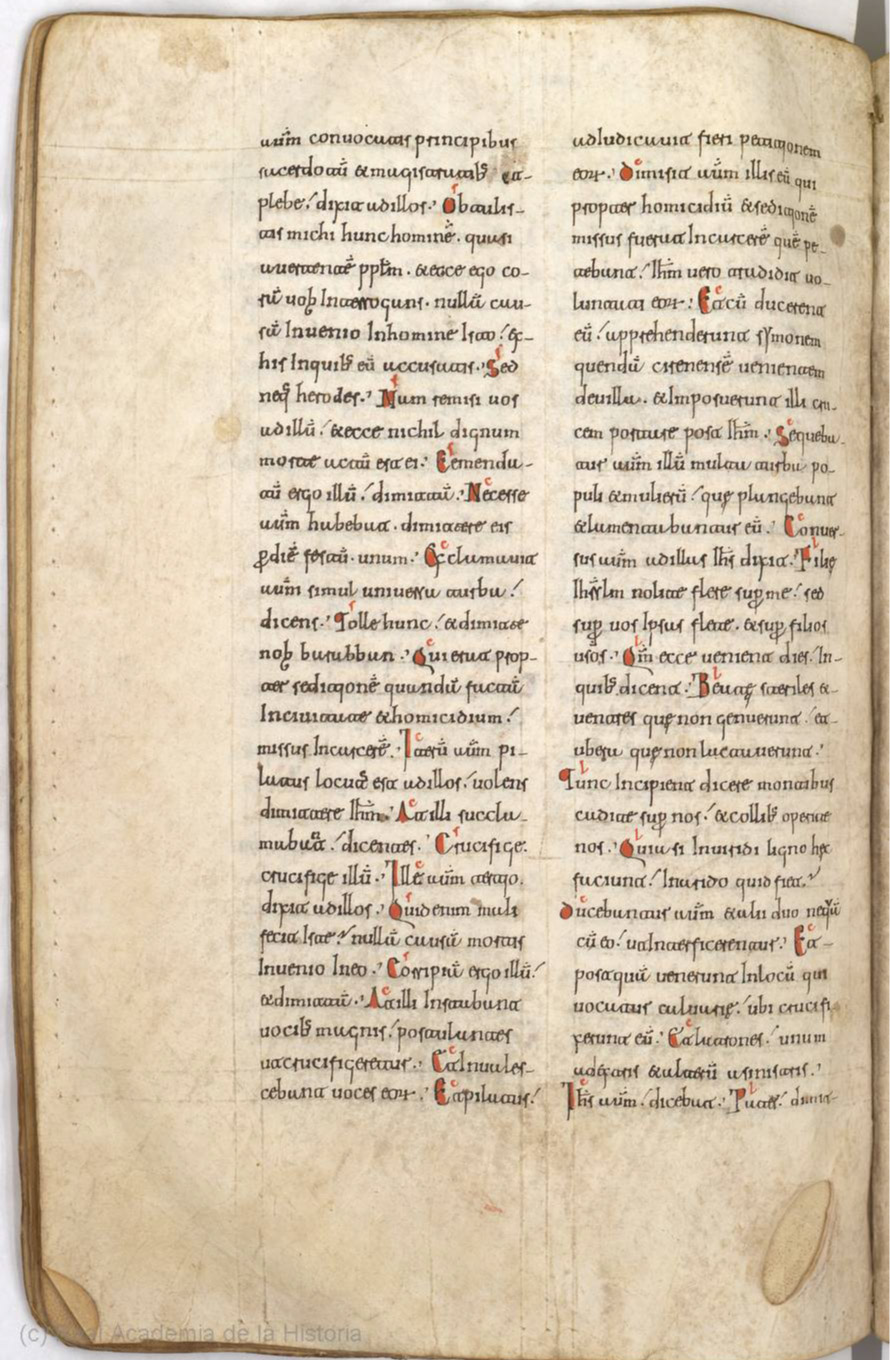 aūm convocatis principibus
sacerdotū & magistratibꝫ et
plebe dixit ad illos. Obtulis-
tis michi hunc hominē. quasi
avertentē pplm̄. & ecce ego co-
rā vobꝫ Interrogans. nullā cau-
sā Invenio Inhomine Isto ex-
his Inquibꝫ eū accusatis. Sed
neqꝫ herodes. Nam remisi vos
ad illū & ecce nichil dignum
morte actū est ei. Emenda-
tū ergo illū dimittā. Necesse
aūm habebat. dimittere eis
ꝑ diē festū. unum. Exclamavit
aūm simul universa turba
dicens. Tolle hunc & dimitte
nobꝫ barabban. Qui erat prop-
ter seditionē quandā factā
In civitate & homicidium
missus In carcerē. Iterū aūm pi-
latus locutꝰ est ad illos volens
dimittere Ihm̄. At illi succla-
mabant dicentes. Crucifige.
crucifige illū. Ille aūm tertio.
dixit ad illos. Quid enim mali
fecit Iste nullā causā mortis
Invenio Ineo. Corripiā ergo illū
& dimittā. At illi Instabant
vocibꝫ magnis postulantes
ut crucifigeretur. Et Invales-
cebant voces eorꝝ. Et pilatus
adiudicavit fieri petitionem
eorꝝ. Dimisit aūm illis eū qui
propter homicidiū & seditionē
missus fuerat In carcerē quē pe-
tebant Ihm̄ vero tradidit vo-
luntati eorꝝ. Et cū ducerent
eū apprehenderunt symonem
quendā cirenensē venientem
de villa. & Imposuerunt illi cru-
cem portare post Ihm̄. Sequeba-
tur aūm illū multa turba po-
puli & mulierū quę plangebant
& lamentabantur eū. Conver-
sus aūm ad illas Ihs̄ dixit. Filię
Ihrslm nolite flere supꝑ me sed
supꝑ vos Ipsas flete. & supꝑ filios
vsos. Qm̄ ecce venient dies. In-
quibꝫ dicent. Beatę steriles &
ventres quę non genuerunt et-
ubera quę non lactaverunt.
Tunc Incipient dicere montibus
cadite supꝑ nos & collibꝫ operite
nos. Quia si Inviridi ligno hęc
faciunt Inarido quid fiet.
Ducebantur aūm & alii duo neqā
cū eo ut Interficerentur. Et-
postquā venerunt Inlocū qui
vocatur calvarię ubi crucifi-
xerunt eū. Et latrones unum
adextris & alterū asinistris.
Ihs̄ aūm dicebat. Pater dimit-